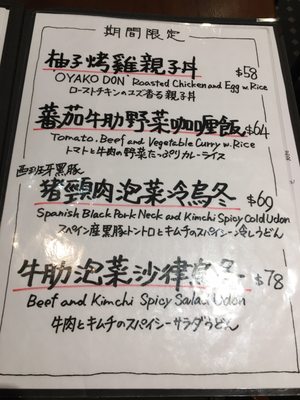 期間限定
柚子烤雞親子丼 $58
OYAKO DON Roasted Chicken and Egg w.Rice
ローストチキンのユズ香る親子丼
蕃茄牛肋野菜咖喱飯 $64
Tomato.Beef and Vegetable Curry w.Rice
トマトと牛肉の野菜たっぷりカレーライス
西班牙黑豚
猪頸肉泡菜冷烏冬 $69
Spanish Black Pork Neck and Kimchi Spicy Cold Udon
スペイン産黒豚トントロとキムチのスパイシー冷しうどん
牛肋泡菜沙律烏冬 $78
Beef and Kimchi Spicy Salad Udon
牛肉とキムチのスパイシーサラダうどん